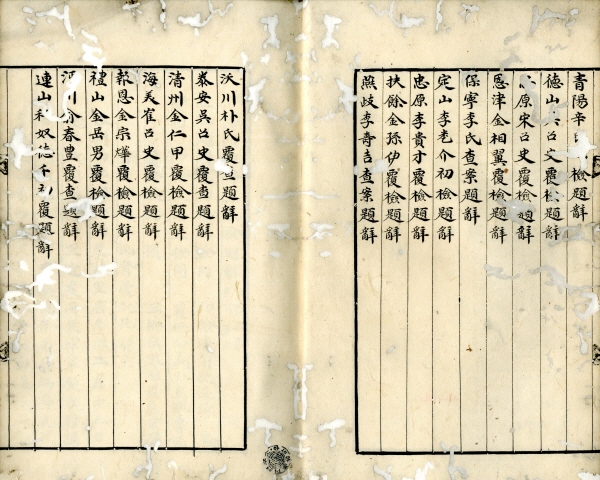 青陽辛檢題辭
德山召史覆檢題辭
原宋召史覆檢題辭
恩津金相翼覆檢題辭
保寧李氏查案題辭
定山李老介初檢題辭
忠原李貴才覆檢題辭
扶餘金孫伊覆檢題辭
燕歧李奇吉查案題辭
沃川朴氏覆查題辭
泰安吳召史覆查題辭
清州金仁甲覆檢題辭
海美崔召史覆檢題辭
報恩金宗燁覆檢題辭
禮山金岳男覆檢題辭
川春豊覆查題辭
連山私奴德千初覆題辭